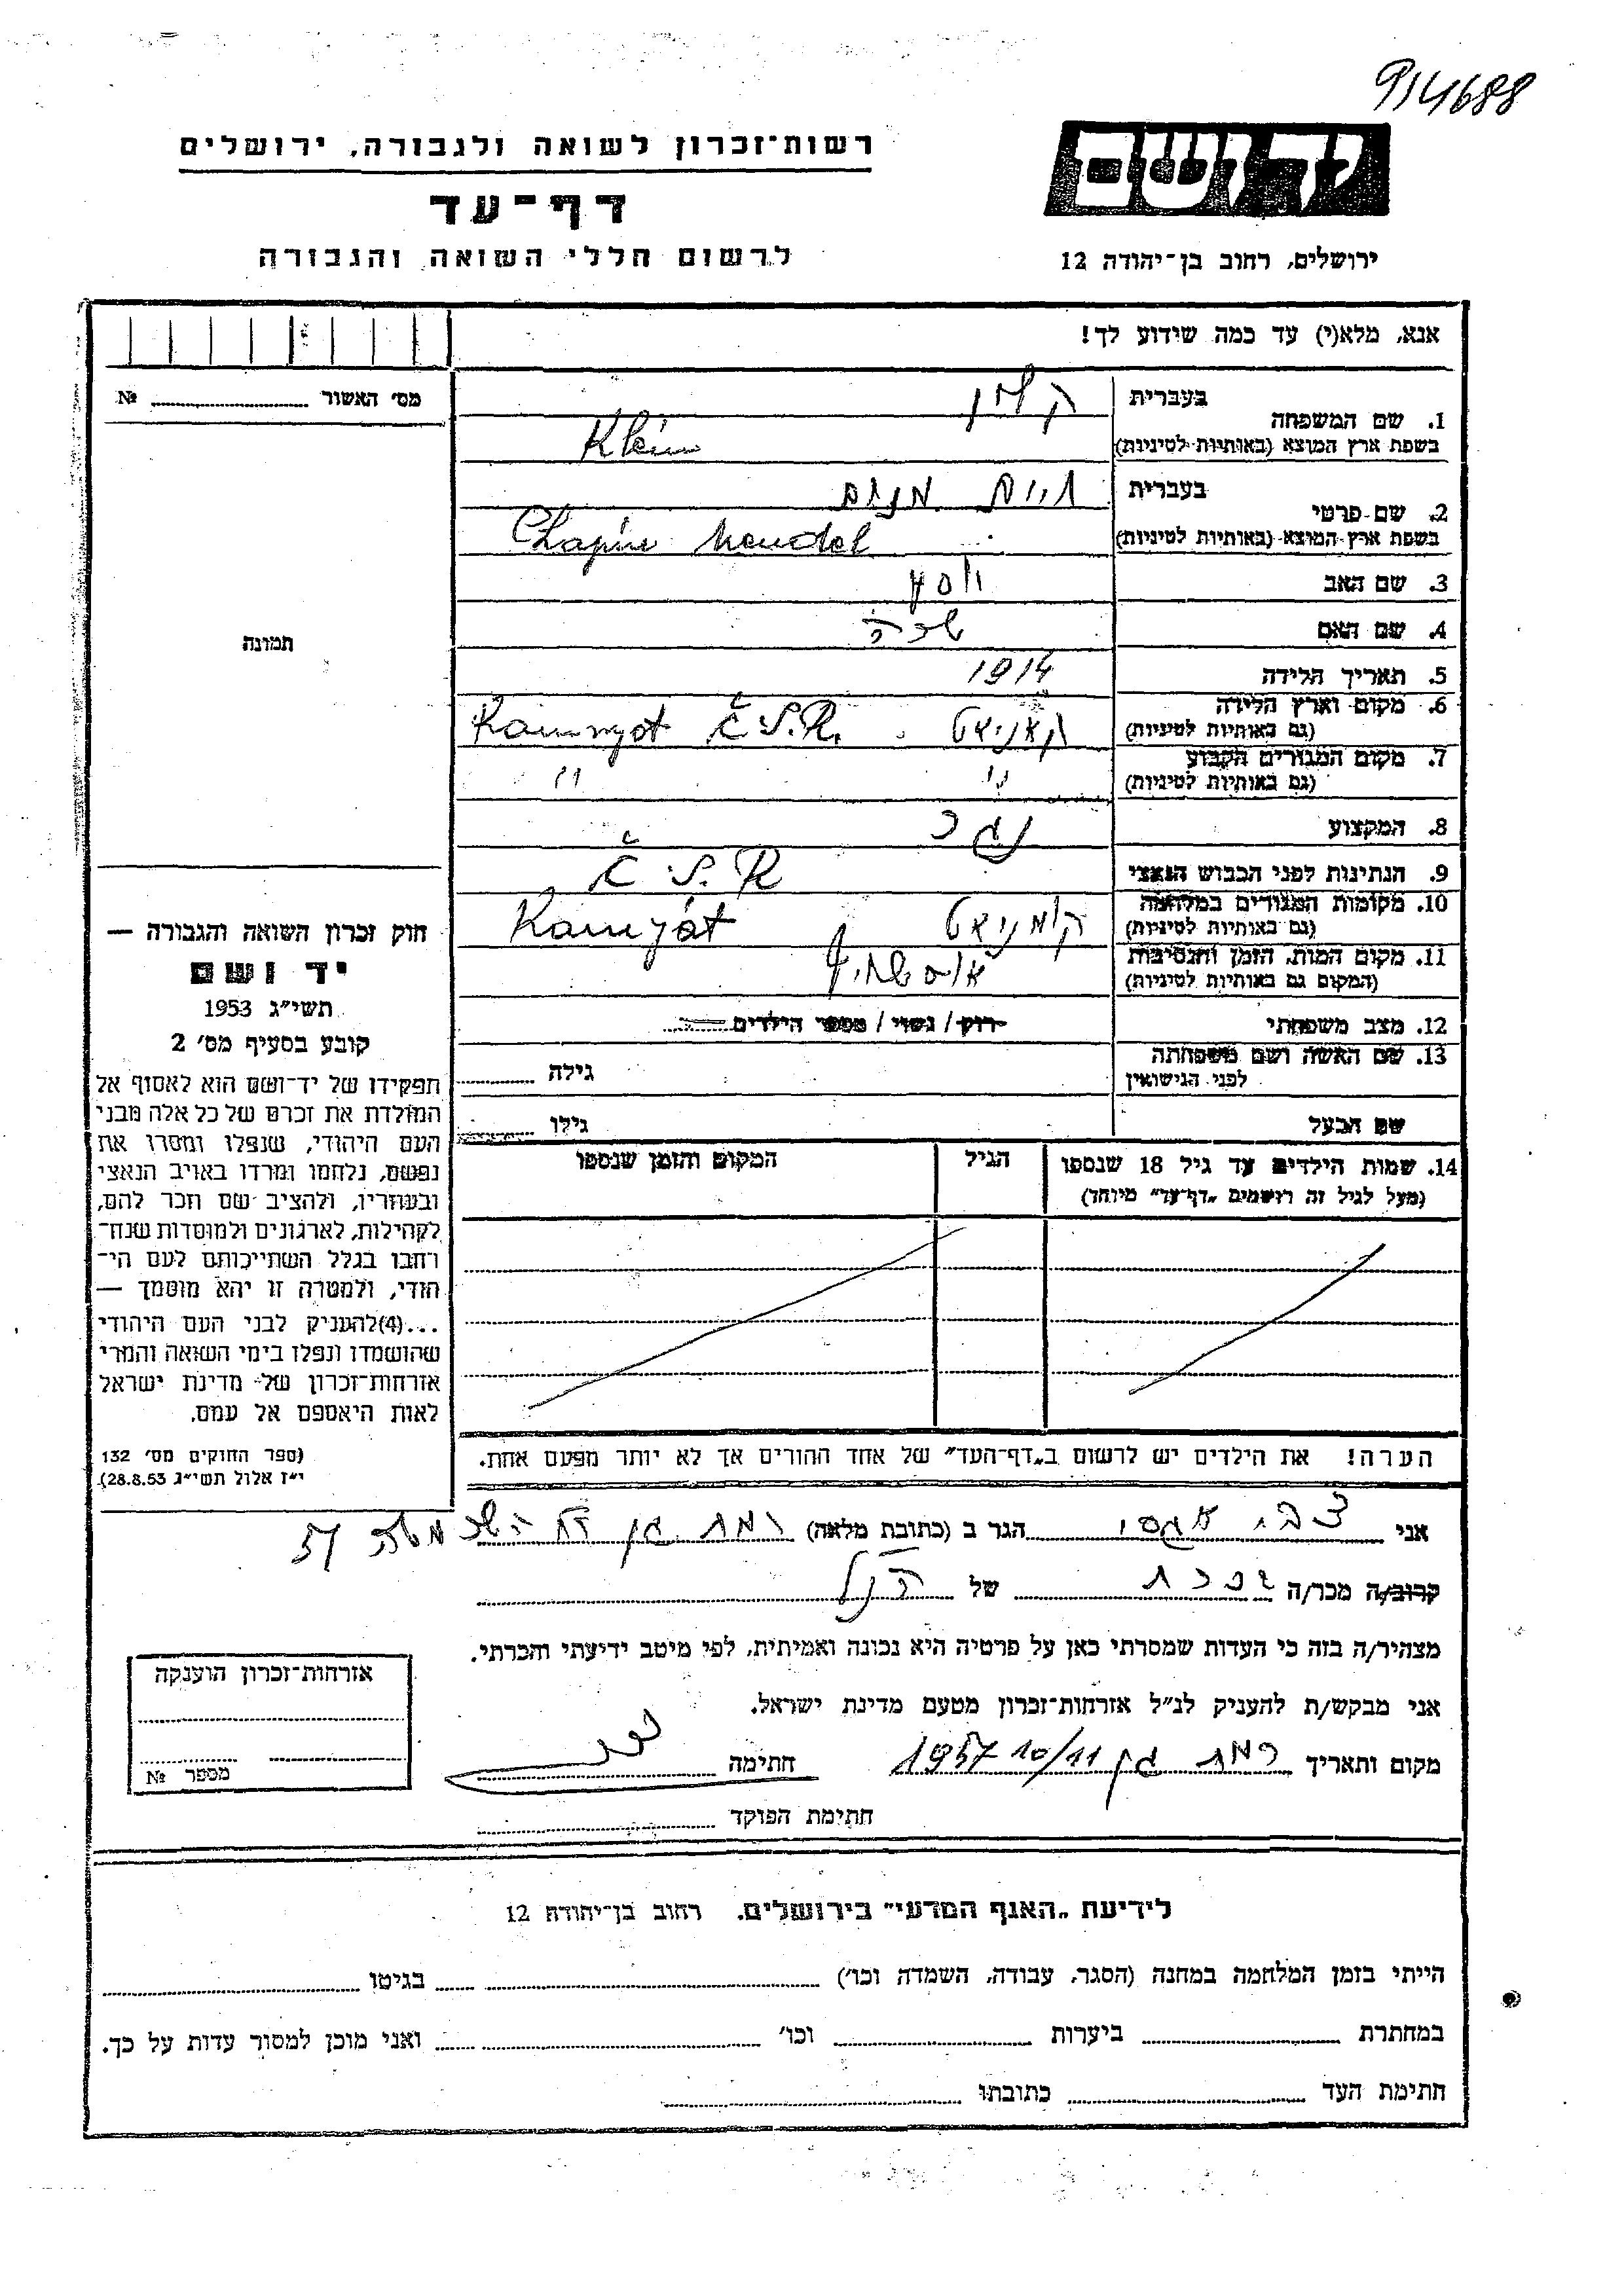 914688
רשות־זכרון לשואה ולגבורה, ירושלים
יד ושם
דף־עד
לרשום חללי השואה והגבורה
ירושלים, רחוב בן־יהודה 12
אנא, מלא(י) עד כמה שידוע לך!
מס׳ האשור № 
1. שם המשפחה בעברית קליין
בשפת ארץ המוצא (באותיות לטיניות) Klein
2. שם פרטי בעברית חיים
בשפת ארץ המוצא (באותיות לטיניות) Mendel
3. שם האב יוסף
4. שם האם שרה
5. תאריך הלידה 1914
6. מקום וארץ הלידה Č.S.R.
(גם באותיות לטיניות)
7. מקום המגורים הקבוע " "
(גם באותיות לטיניות)
8. המקצוע נגר
9. הנתינות לפני הכבוש הנאצי Č.S.R
10. מקומות המגורים במלחמה Kamyát
(גם באותיות לטיניות)
11. מקום המות, הזמן והנסיבות
(המקום גם באותיות לטיניות)
12. מצב משפחתי רווק / נשוי / מספר הילדים
13. שם האשה ושם משפחתה גילה
לפני הנישואין
שם הבעל גילו
תמונה
חוק זכרון השואה והגבורה —
יד ושם
תשי״ג 1953
קובע בסעיף מס׳ 2
תפקידו של יד־ושם הוא לאסוף אל
המולדת את זכרם של כל אלה מבני
העם היהודי, שנפלו ומסרו את
נפשם, נלחמו ומרדו באויב הנאצי
ובעוזריו, ולהציב שם וזכר להם,
לקהילות, לארגונים ולמוסדות שנח־
רבו בגלל השתייכותם לעם הי־
הודי, ולמטרה זו יהא מוסמך —
...(4)להעניק לבני העם היהודי
שהושמדו ונפלו בימי השואה והמרי
אזרחות־זכרון של מדינת ישראל
לאות היאספם אל עמם.
(ספר החוקים מס׳ 132
י״ז אלול תשי״ג 28.8.53)
14. שמות הילדים עד גיל 18 שנספו הגיל המקום והזמן שנספו
(מעל לגיל זה רושמים „דף־עד״ מיוחד)
הערה! את הילדים יש לרשום ב„דף־העד״ של אחד ההורים אך לא יותר מפעם אחת.
אני צבי הגר ב (כתובת מלאה) רמת גן
קרוב/ה מכר/ה של הנ״ל
מצהיר/ה בזה כי העדות שמסרתי כאן על פרטיה היא נכונה ואמיתית, לפי מיטב ידיעתי והכרתי.
אני מבקש/ת להעניק לנ״ל אזרחות־זכרון מטעם מדינת ישראל.
מקום ותאריך רמת גן 10/11 1957 חתימה
חתימת הפוקד
אזרחות־זכרון הוענקה
מספר №
לידיעת „האגף המדעי״ בירושלים, רחוב בן־יהודה 12
הייתי בזמן המלחמה במחנה (הסגר, עבודה, השמדה וכו׳) בגיטו
במחתרת ביערות וכו׳ ואני מוכן למסור עדות על כך.
חתימת העד כתובתו